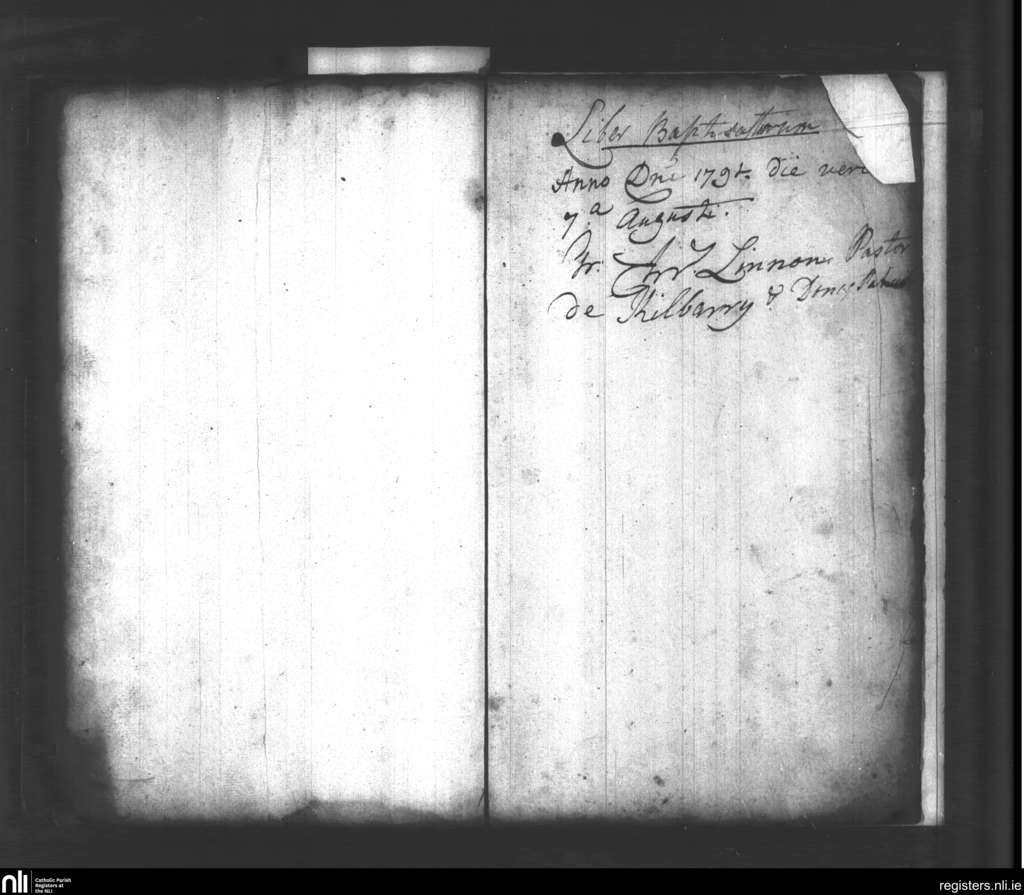 Liber Baptisatorum
Anno Dni 1791. die vero
7.a Augusti.
Fr. Linnon Pastor
de Kilbarry &
nli Catholic Parish
Registers at
the NLI
registers.nli.ie